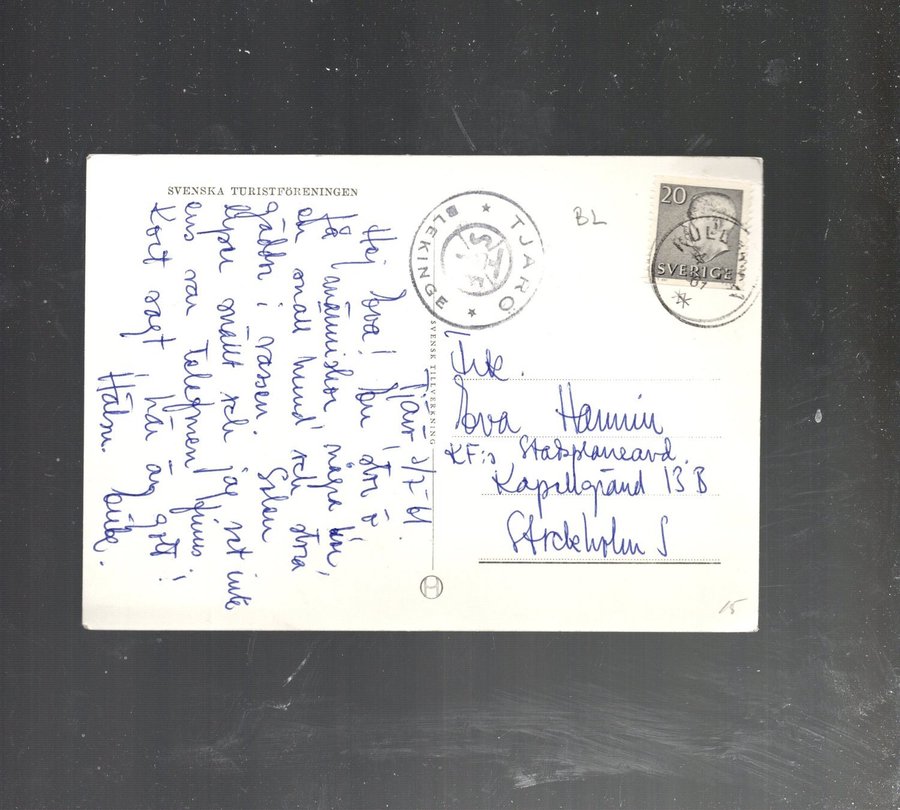 SVENSKA TURISTFÖRENINGEN
Tjärö 3/7-61.
Hej Eva! En stor ö
få människor några kor,
en snäll hund och stora
gäddor i vassen. Solen
skiner snällt och jag vet inte
ens var telefonen finns!
Kort sagt här är gott!
Hälsn.
TJÄRÖ
BLEKINGE
SVENSK TILLVERKNING
BL
20
SVERIGE
61
Frk.
Eva Hammin
KF:s Stadsplaneavd.
Kapellgränd 13 B
Stockholm S
15